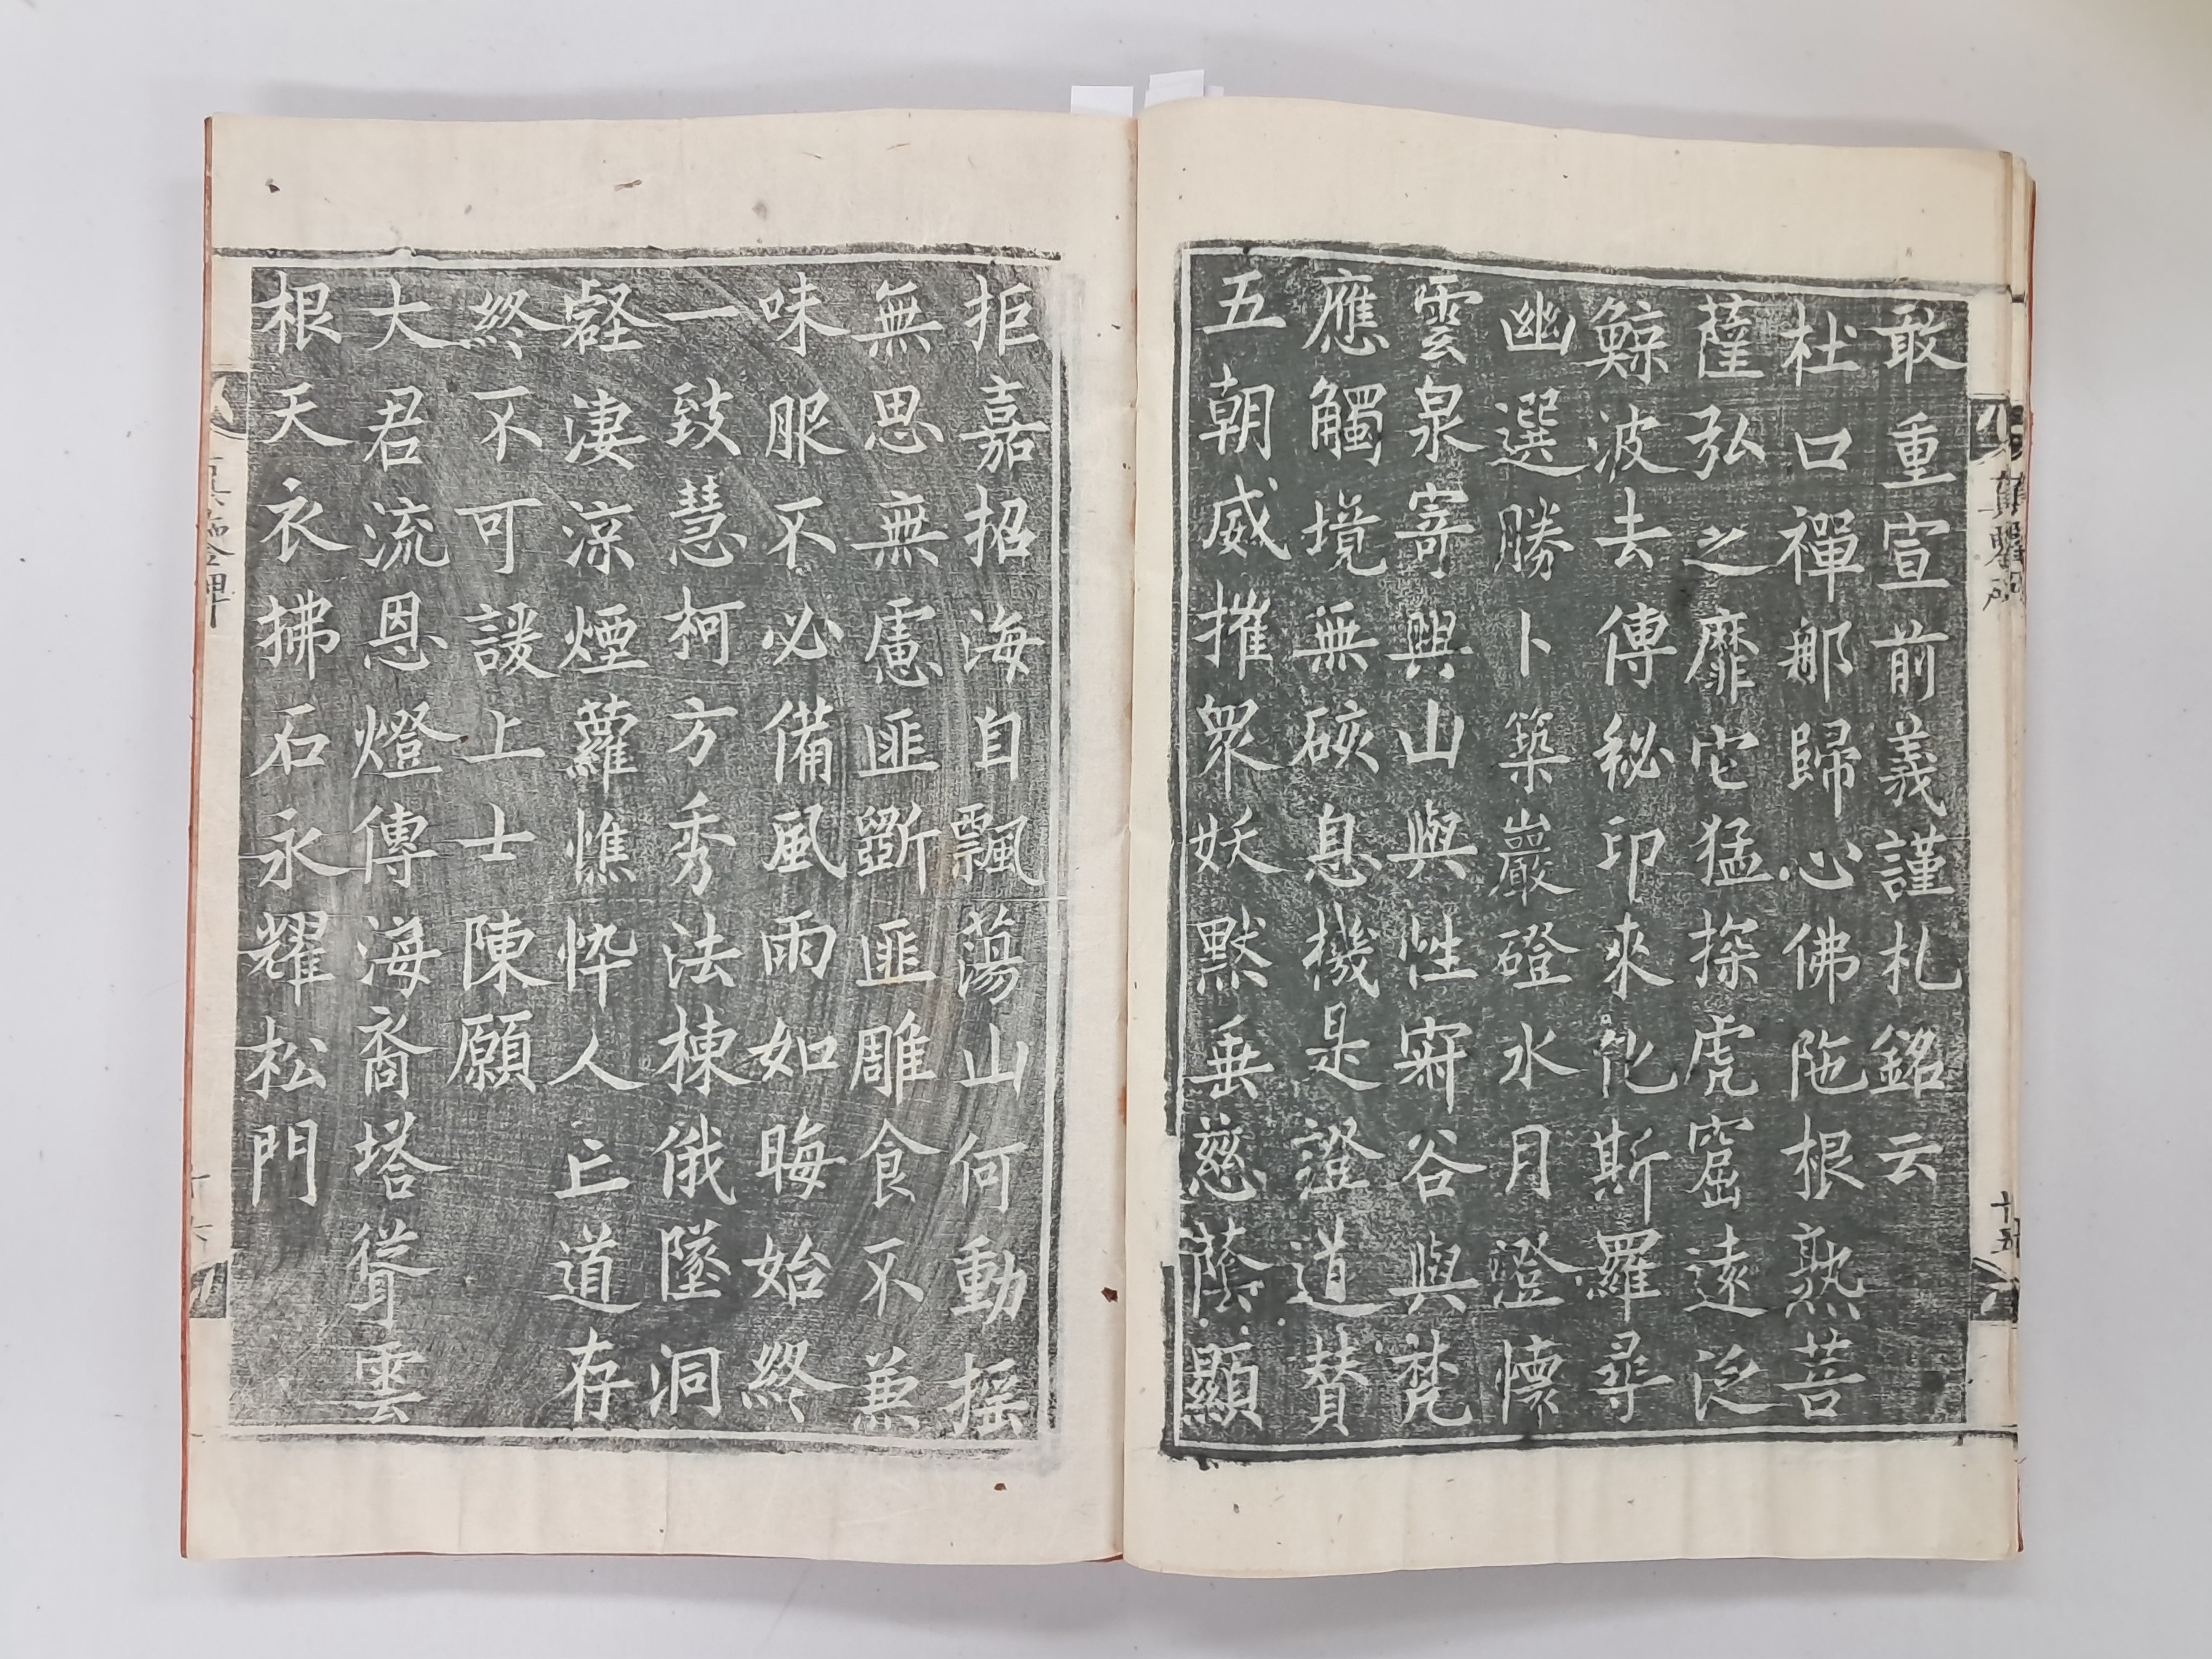 敢重宣前義謹札銘云
杜口禪那歸心佛陁根熟菩
薩弘之靡它猛探虎窟遠泛
鯨波去傳秘印來化斯羅尋
幽選勝卜築巖磴水月澄懷
雲泉寄興山與性寂谷與梵
應觸境無硋息機是證道贊
五朝威摧衆妖黙垂慈蔭顯
十五
拒嘉招海自飄蕩山何動搖
無思無慮匪斵匪雕食不兼
味服不必備風雨如晦始終
一致慧柯方秀法棟俄墜洞
壑凄凉煙蘿憔悴人亡道存
終不可諼上士陳願
大君流恩燈傳海裔塔聳雲
根天衣拂石永耀松門